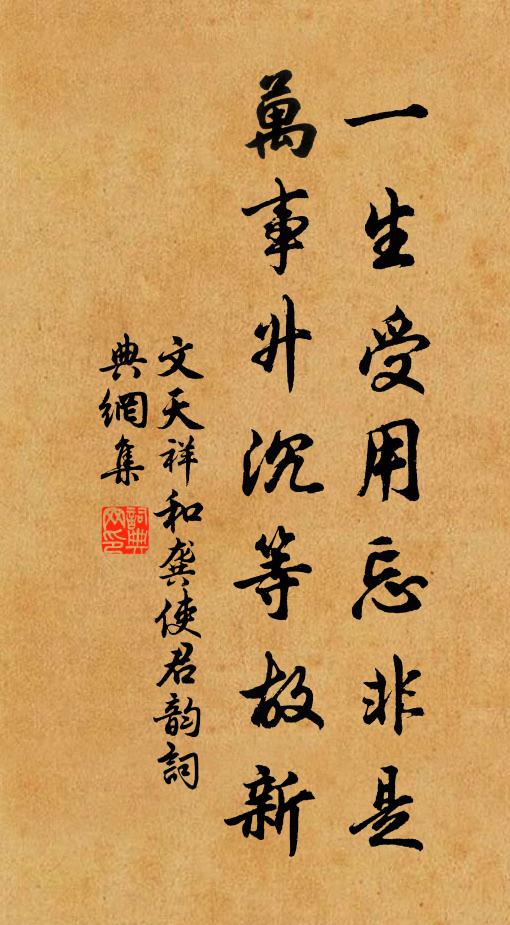 一生受用忘非是
萬事升沉等故新
文天祥和龔使君韵詞
典網集
詞典網印